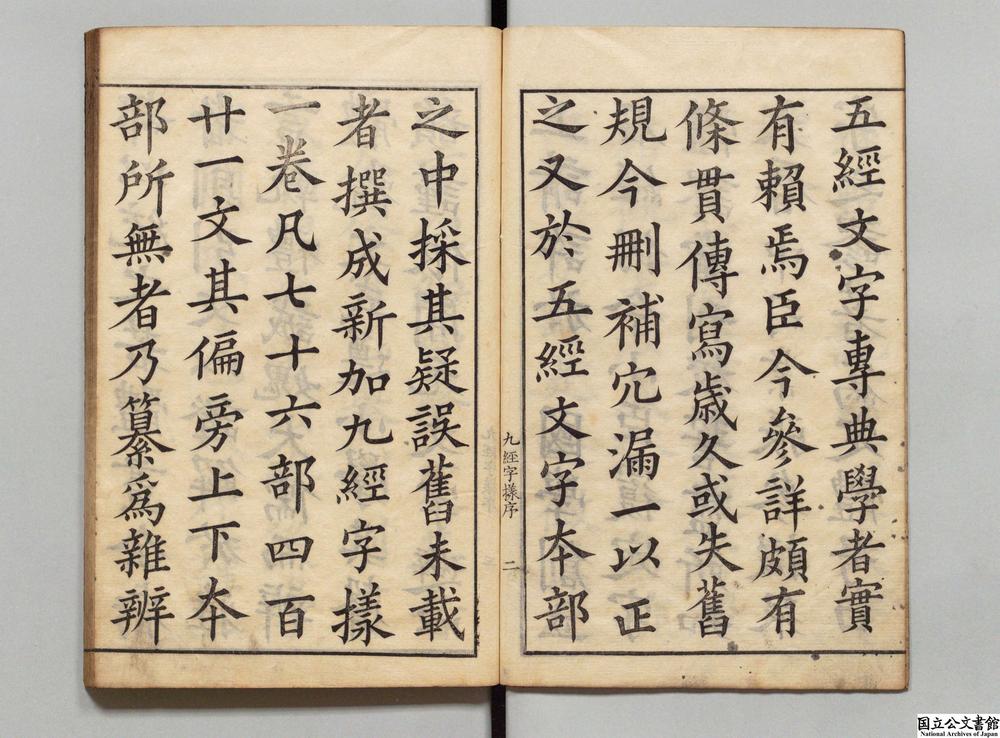 五經文字專典學者實
有賴焉臣今參詳頗有
條貫傳寫歲久或失舊
規今刪補宂漏一以正
之又於五經文字本部
九經字樣序
二
之中採其疑誤舊未載
者撰成新加九經字樣
一卷凡七十六部四百
廿一文其偏旁上下本
部所無者乃纂爲雜辨
国立公文書館
National Archives of Japan